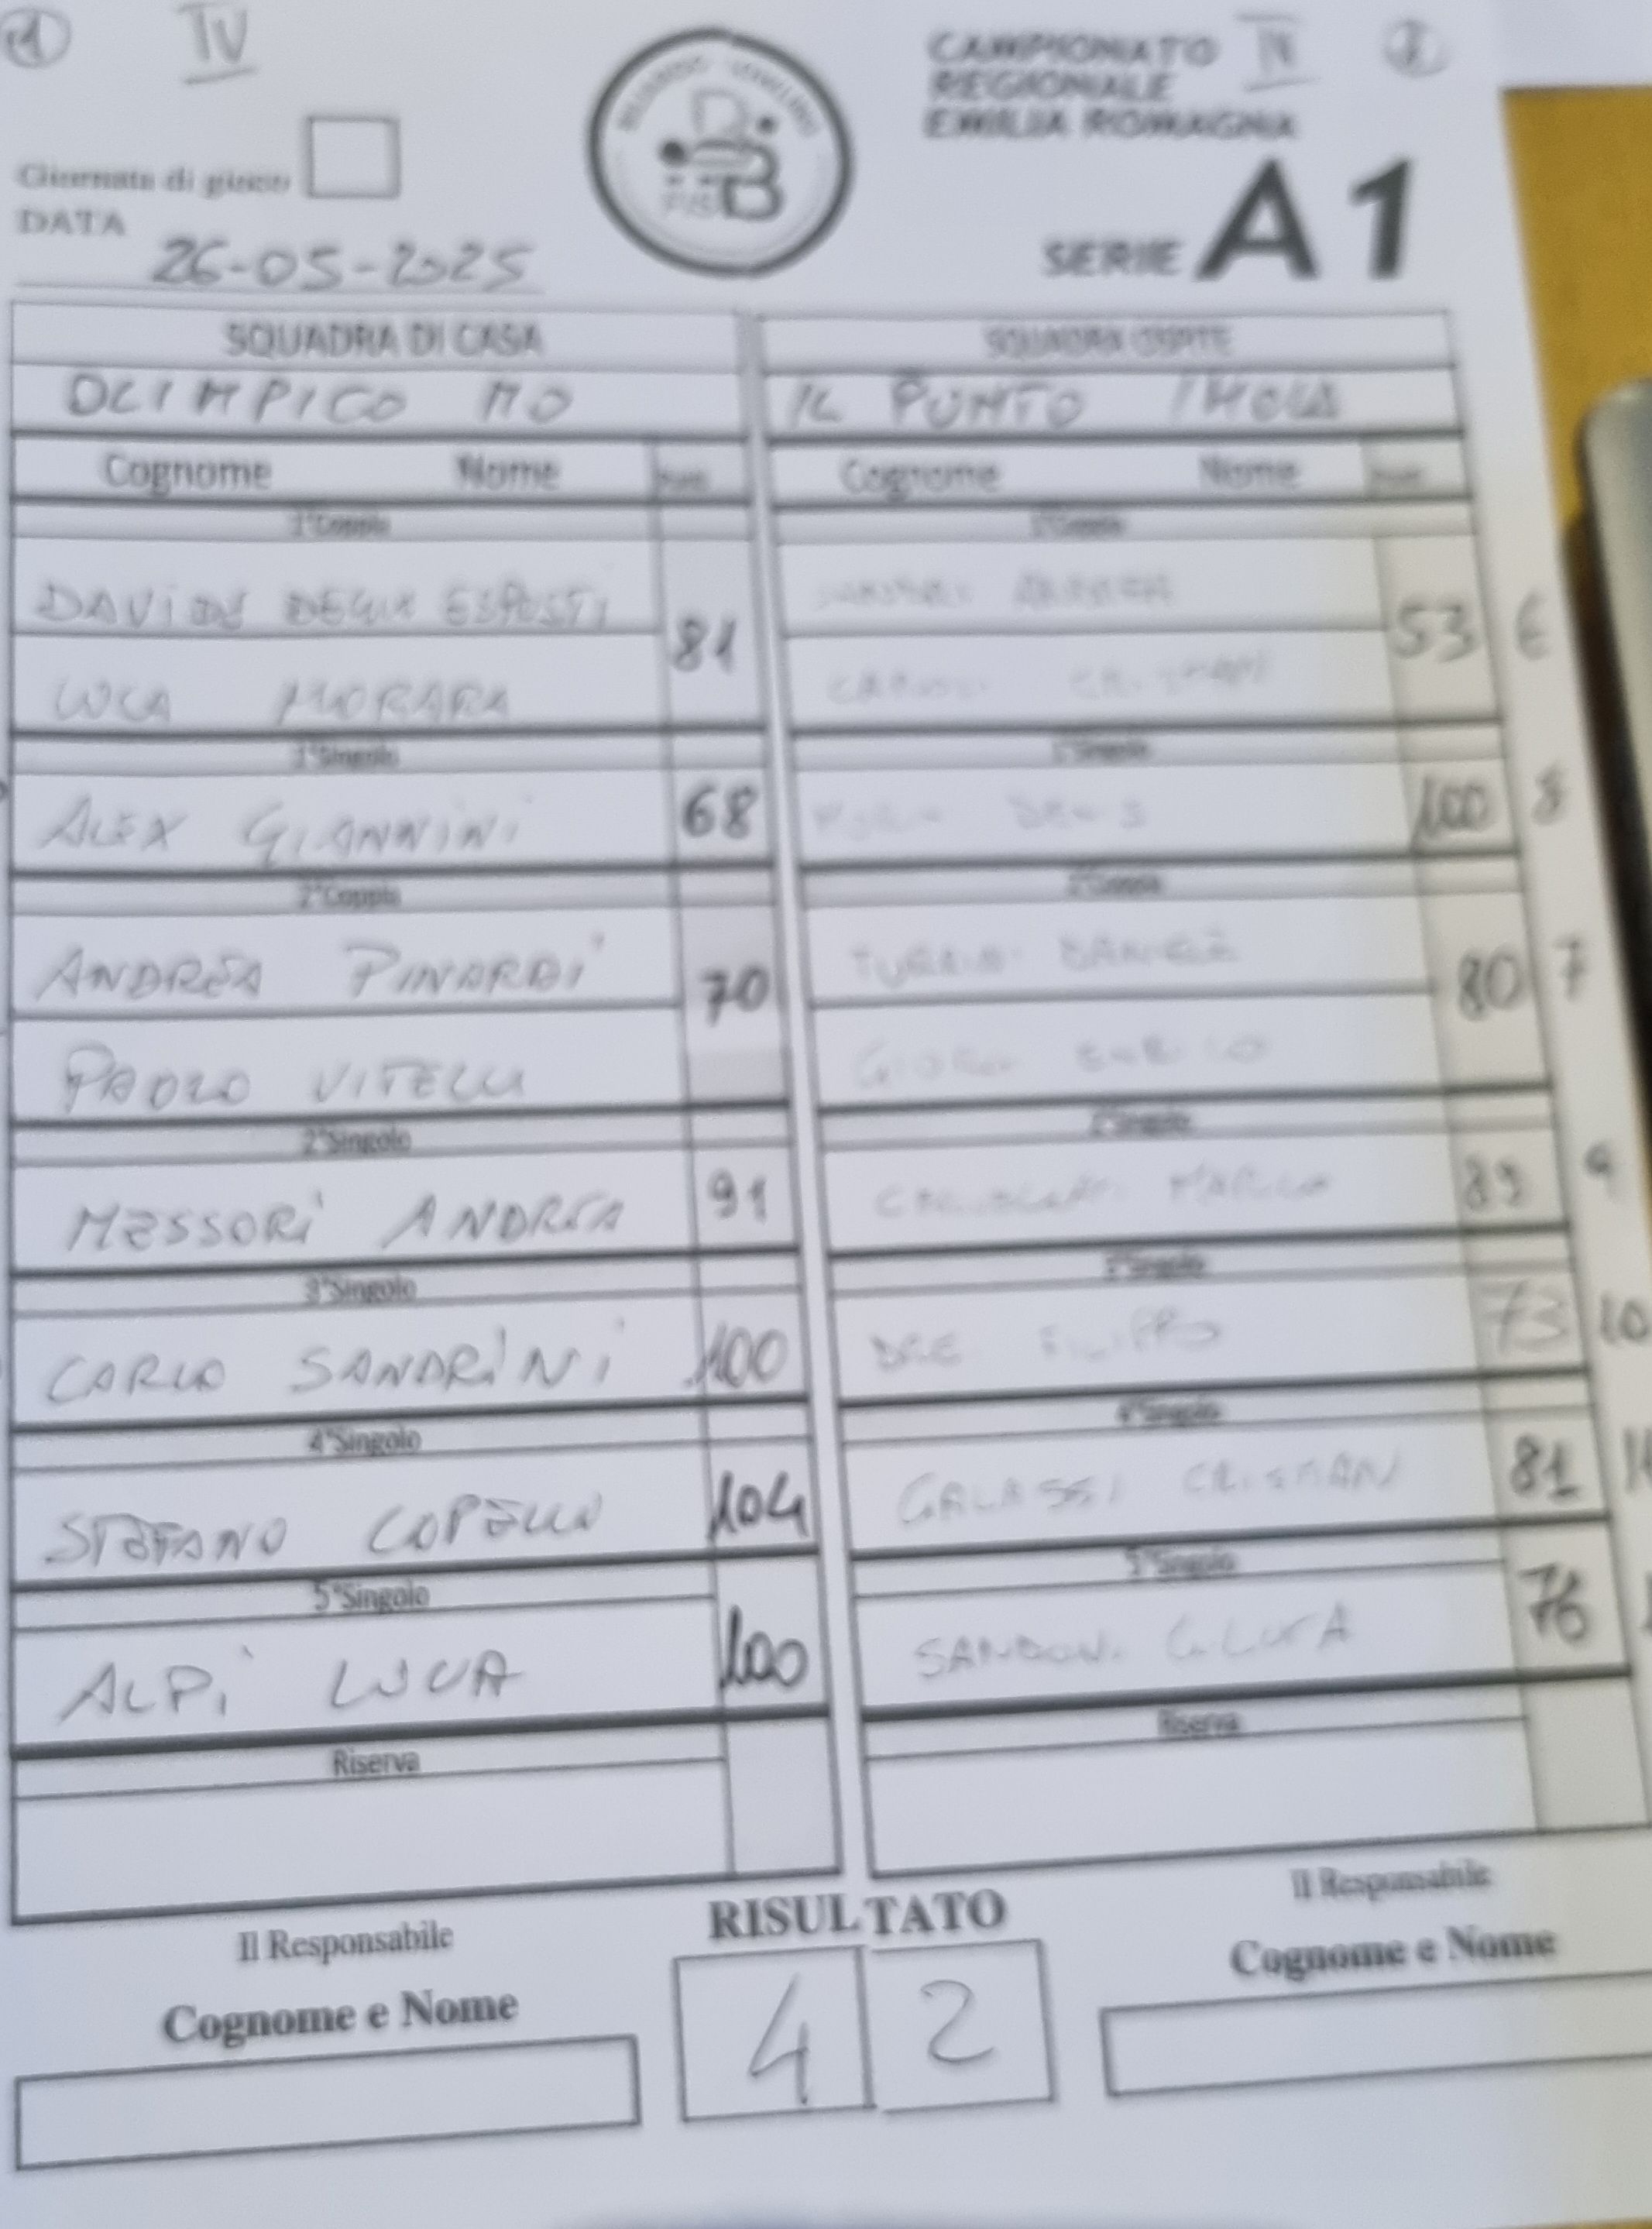 1 IV
CAMPIONATO IV 2
REGIONALE
EMILIA ROMAGNA
SERIE A1
Giornata di gioco
DATA
26-05-2025
SQUADRA DI CASA SQUADRA OSPITE
OLIMPICO MO IL PUNTO IMOLA
Cognome Nome Cognome Nome
1°Coppia 1°Coppia
DAVIDE DEGLI ESPOSTI 81 53 6
LUCA MORARA
1°Singolo 1°Singolo
ALEX GIANNINI 68 100 8
2°Coppia 2°Coppia
ANDREA PINARDI 70 DANIELE 80 7
PAOLO VITELLI ENRICO
2°Singolo 2°Singolo
MESSORI ANDREA 91 MARCO 89 9
3°Singolo 3°Singolo
CARLO SANDRINI 100 DREI FILIPPO 73 10
4°Singolo 4°Singolo
STEFANO COPELLI 104 GALASSI CRISTIAN 81
5°Singolo 5°Singolo
ALPI LUCA 100 G.LUCA 76
Riserva Riserva
Il Responsabile RISULTATO Il Responsabile
Cognome e Nome 4 2 Cognome e Nome